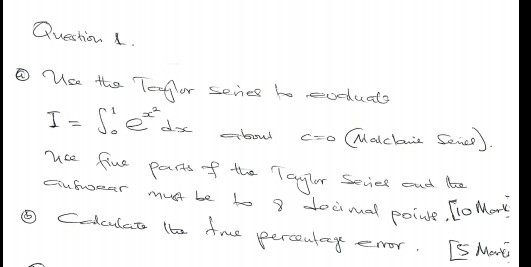 Question 1.
ⓐ Use the Taylor series to evaluate
I = ∫₀¹ e^{x²} dx about c=0 (Malclaine Series).
Use five parts of the Taylor Series and the
answear must be to 8 decimal points. [10 Mark
ⓑ Calculate the true percentage error. [5 Marks